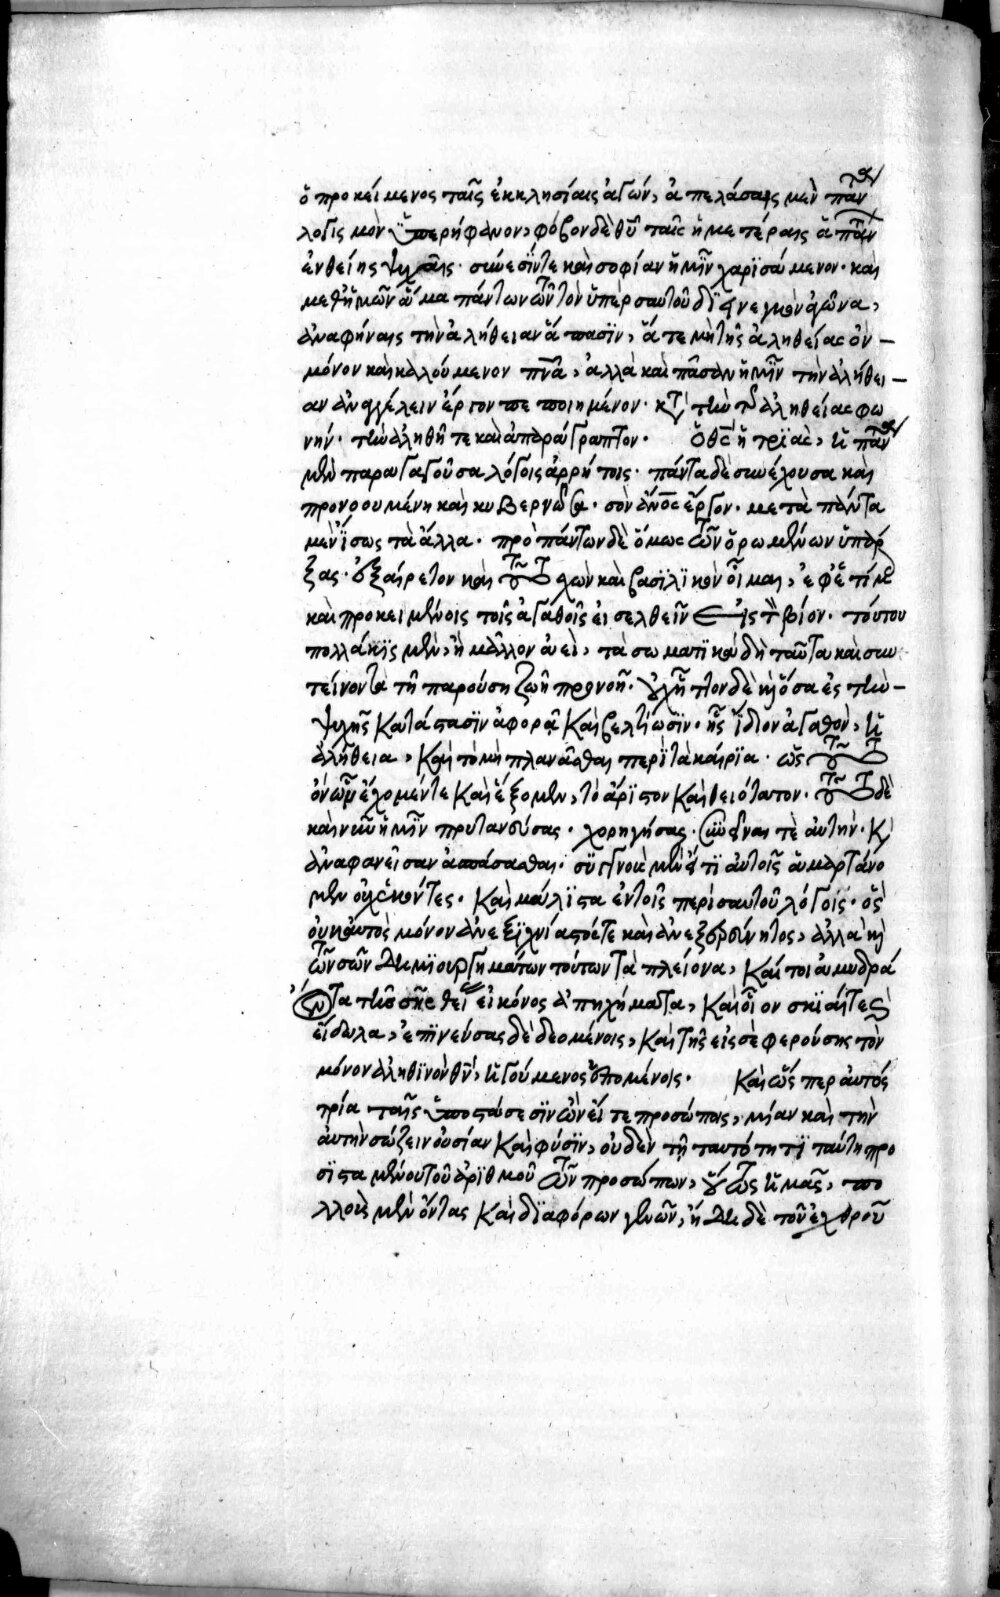 ὁ προκείμενος ταῖς ἐκκλησίαις ἀγών, ἀπελάσαις μὲν πάντα
λογισμὸν ὑπερήφανον, φόβον δὲ θῦ ταῖς ἡμετέραις ἁπάντων
ἐνθείης ψυχαῖς· σύνεσίν τε καὶ σοφίαν ἡμῖν χαρισάμενον· καὶ
μεθ' ἡμῶν ἅμα πάντων τῶν τὸν ὑπὲρ σαυτοῦ ἀγῶνα,
ἀναφήναις τὴν ἀλήθειαν ἅπασιν, ἅτε μὴ τῆς ἀληθείας ὂν
μόνον καὶ καλούμενον πνᾶ, ἀλλὰ καὶ πᾶσαν ἡμῖν τὴν ἀλήθει
αν ἀναγγέλειν ἔργον πεποιημένον· κατὰ τὴν τῆς ἀληθείας φω
νήν· τὴν ἀληθῆ τε καὶ ἀπαράγραπτον· ὅθς ἡ τριὰς, ἡ πάντα
μὲν παραγαγοῦσα λόγοις ἀρρήτοις· πάντα δὲ συνέχουσα καὶ
προνοουμένη καὶ κυβερνῶσα· σὸν ἔργον· μετὰ πάντα
μὲν ἴσως τὰ ἄλλα· πρὸ πάντων δὲ ὅμως τῶν ὁρωμένων ὑπάρ
ξας· ἐξαίρετον καὶ τούτων καὶ βασιλικὸν οἶμαι, ἐφέ τινι
καὶ προκειμένοις τοῖς ἀγαθοῖς εἰσελθεῖν εἰς τὸν βίον· τούτου
πολλάκις μὲν, ἢ μᾶλλον ἀεὶ, τὰ σωματικὰ δὴ ταῦτα καὶ συν
τείνοντα τῇ παρούσῃ ζωῇ προνοῇ· οὐχ ἧττον δὲ καὶ ὅσα ἐς τὴν
ψυχῆς κατάστασιν ἀφορᾷ καὶ βελτίωσιν· ἧς ἴδιον ἀγαθὸν, ἡ
ἀλήθεια, καὶ τὸ μὴ πλανᾶσθαι περὶ τὰ καίρια· ὡς τοῦτο
ὃ νῦν ἔχομέν τε καὶ ἕξομεν, τὸ ἄριστον καὶ θειότατον· τοῦτο δὲ
καὶ νῦν ἡμῖν πρυτανεύσας· χορηγήσας· εἶναι τὲ αὐτὴν· καὶ
ἀναφανεῖσαν ἀσπάσασθαι· συγγνοὺς μὲν εἴ τι αὐτοῖς ἁμαρτάνο
μεν οὐχ ἑκόντες· καὶ μάλιστα ἐν τοῖς περὶ σαυτοῦ λόγοις· ὃς
οὐκ αὐτὸς μόνον ἀνεξιχνίαστός τε καὶ ἀνεξερεύνητος, ἀλλὰ καὶ
τῶν σῶν δημιουργημάτων τούτων τὰ πλείονα, καί τοι ἀμυδρὰ
ὄντα τῆς σῆς θείας εἰκόνος ἀπηχήματα, καὶ οἷον σκιαί τε καὶ
εἴδωλα, ἐπινεύσας δὲ δεομένοις, καὶ τῆς εἰς σὲ φερούσης τὸν
μόνον ἀληθινὸν θν̅, ἡγούμενος ἑπομένοις· καὶ ὥσπερ αὐτός
τρία ταῖς ὑποστάσεσιν ὢν εἴτε προσώποις, μίαν καὶ τὴν
αὐτὴν σώζειν οὐσίαν καὶ φύσιν, οὐδὲν τῇ ταυτότητι ταύτῃ προ
σισταμένου τοῦ ἀριθμοῦ τῶν προσώπων, οὕτως ἡμᾶς, πο
λλοὺς μὲν ὄντας καὶ διαφόρων γενῶν, ἤδη δὲ τοῦ ἐχθροῦ